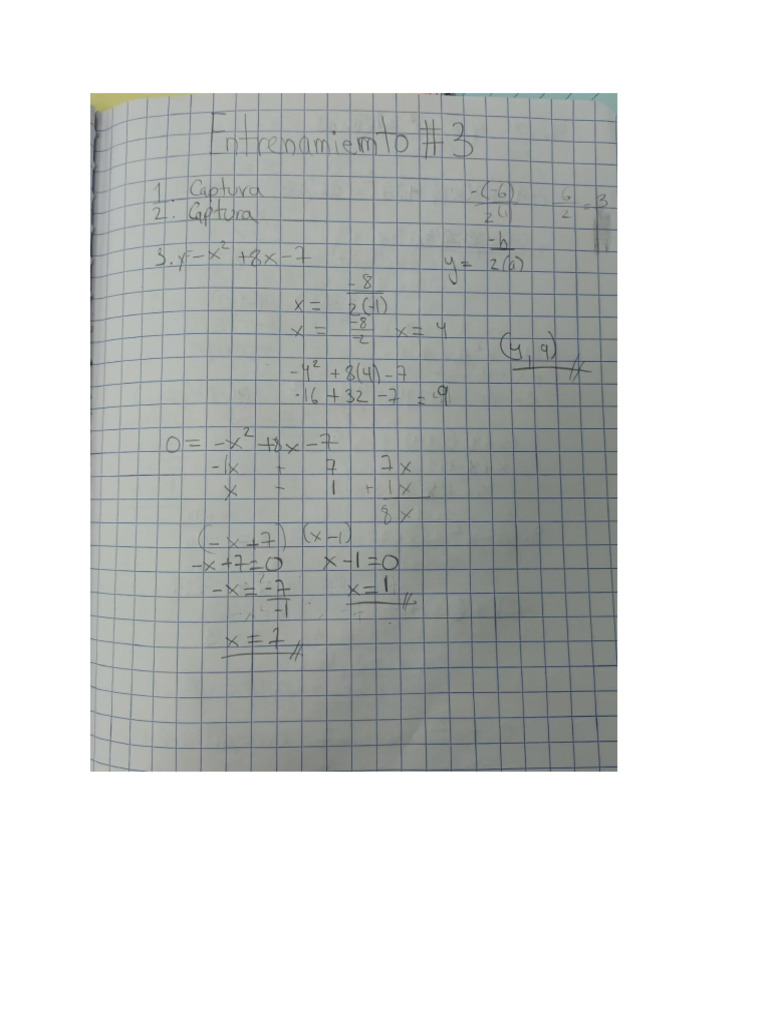 Entrenamiemto #3
1. Captura
2. Captura
-(-6)/2(1) 6/2 = 3
3. y=-x² +8x-7
y= -b/2(a)
x= -8/2(-1)
x= -8/-2 x=4
(4,9)
-4² +8(4)-7
-16+32-7=9
0= -x²+8x-7
-1x - 7 7x
x - 1 + 1x
8x
(-x+7) (x-1)
-x+7=0 x-1=0
-x= -7/-1 x=1
x=7